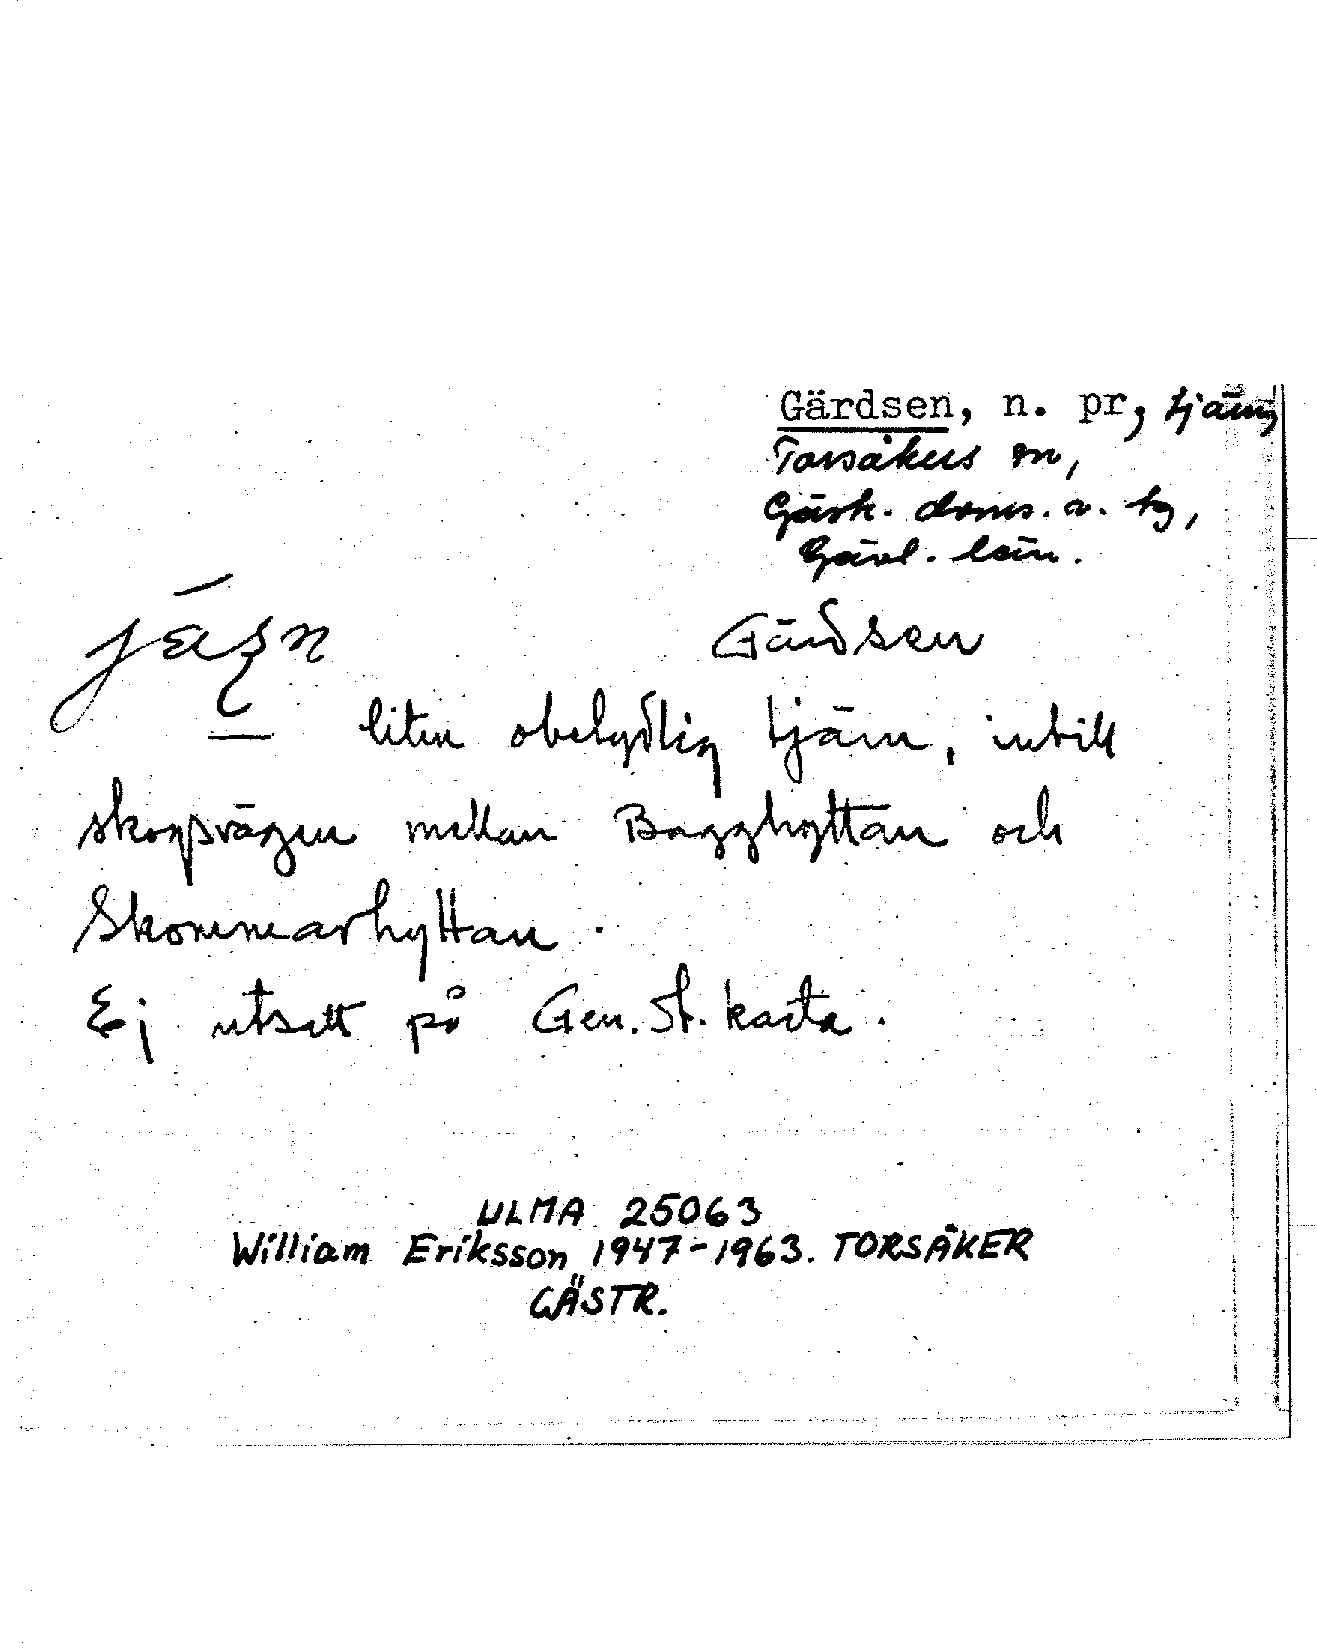 Gärdsen, n. pr, tjärn,
Torsåkers sn,
Gästr. doms. v. tg,
Gävl. län.
Gärdsen
liten obetydlig tjärn, intill
skogsvägen mellan Bagghyttan och
Skommarhyttan.
Ej utsatt på Gen. St. karta.
ULMA 25063
William Eriksson 1947-1963. TORSÅKER
GÄSTR.